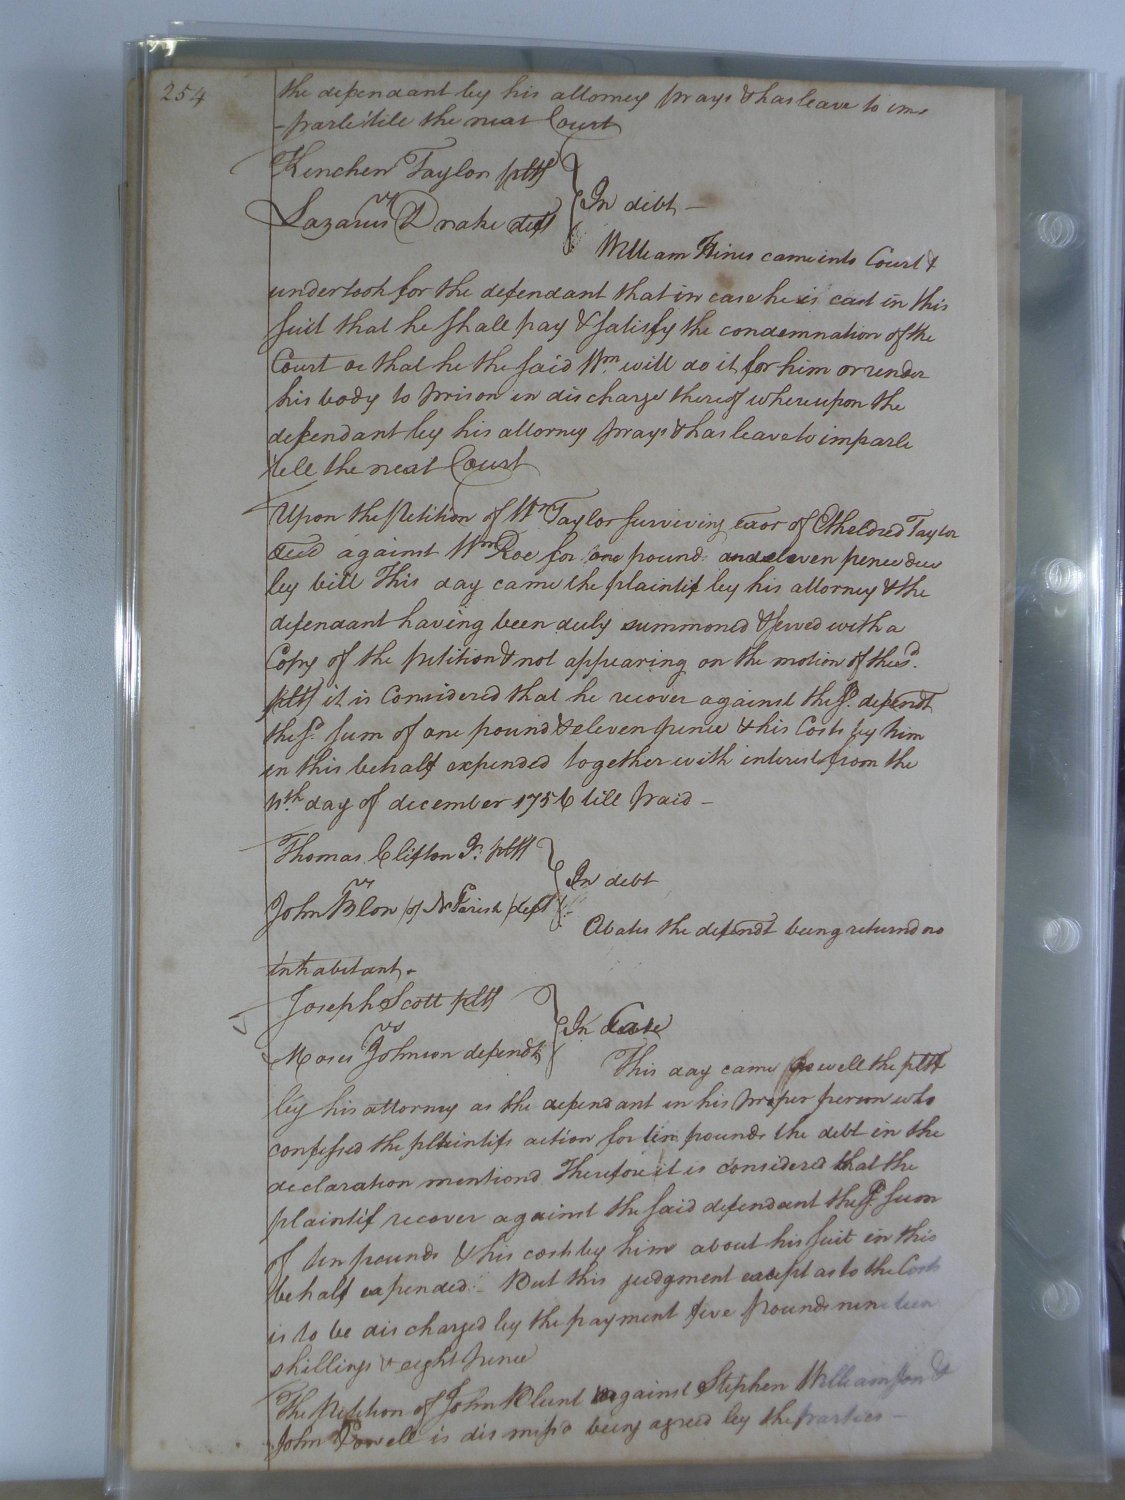 254
the defendant by his attorney prays & has leave to im
-parle till the next Court
Kinchen Taylor pltf
vs
Lazarus Drake deft
In debt —
William Hines came into Court &
undertook for the defendant that in case he is cast in this
suit that he shall pay & satisfy the condemnation of the
Court or that he the said Wm. will do it for him or render
his body to prison in discharge thereof whereupon the
defendant by his attorney prays & has leave to imparle
till the next Court
Upon the Petition of Wm Taylor surviving exor of Etheldred Taylor
decd against Wm Roe for one pound and eleven pence due
by bill This day came the plaintif by his attorney & the
defendant having been duly summoned & served with a
Copy of the petition & not appearing on the motion of the sd.
pltf it is Considered that he recover against the sd. defendt
the sd. sum of one pound & eleven pence & his Costs by him
in this behalf expended together with interest from the
day of december 1756 till paid —
Thomas Clifton Jr. pltf
vs
John Blow (of N Parish) deft
In debt
Abates the defendt being returnd no
inhabitant.
Joseph Scott pltf
vs
Moses Johnson defendt
In Case
This day came as well the pltf
by his attorney as the defendant in his proper person who
confessed the plaintifs action for ten pounds the debt in the
declaration mentiond Therefore it is considered that the
plaintif recover against the said defendant the sd. sum
of ten pounds & his costs by him about his suit in this
behalf expended. — But this judgment except as to the Costs
is to be discharged by the payment five pounds nineteen
shillings & eight pence
The Petition of John Blunt against Stephen Williamson &
John Powell is dismissd being agreed by the parties —